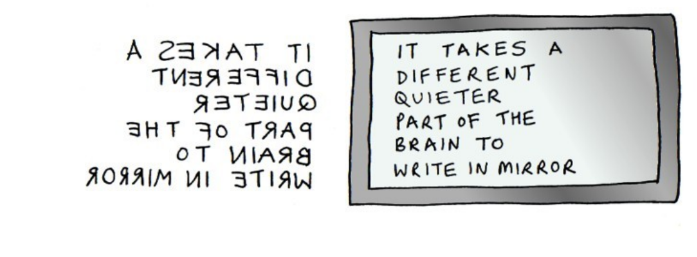 IT TAKES A
DIFFERENT
QUIETER
PART OF THE
BRAIN TO
WRITE IN MIRROR
IT TAKES A
DIFFERENT
QUIETER
PART OF THE
BRAIN TO
WRITE IN MIRROR